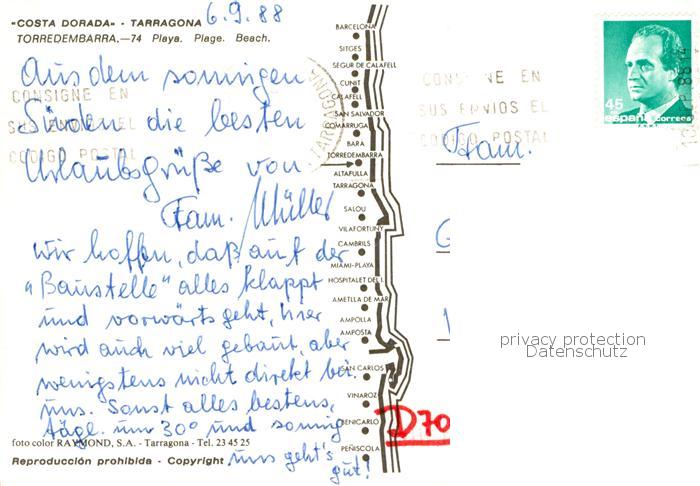 6.9.88
"COSTA DORADA" - TARRAGONA
TORREDEMBARRA.—74 Playa. Plage. Beach.
Aus dem sonnigen
Süden die besten
Urlaubsgrüße von
Fam. Müller
Wir hoffen, daß auf der
"Baustelle" alles klappt
und vorwärts geht, hier
wird auch viel gebaut, aber
wenigstens nicht direkt bei
uns. Sonst alles bestens,
tägl. um 30° und sonnig
uns geht's
gut!
foto color RAYMOND, S.A. - Tarragona - Tel. 23 45 25
Reproducción prohibida - Copyright
CONSIGNE EN
SUS ENVIOS EL
CODIGO POSTAL
TARRAGONA
BARCELONA
SITGES
SEGUR DE CALAFELL
CUNIT
CALAFELL
SAN SALVADOR
COMARRUGA
BARA
TORREDEMBARRA
ALTAFULLA
TARRAGONA
SALOU
VILAFORTUNY
CAMBRILS
MIAMI-PLAYA
HOSPITALET DEL I.
AMETLLA DE MAR
AMPOLLA
AMPOSTA
SAN CARLOS
VINAROZ
BENICARLO
PEÑISCOLA
CONSIGNE EN
SUS ENVIOS EL
CODIGO POSTAL
45
españa correos
Fam.
D70
privacy protection
Datenschutz